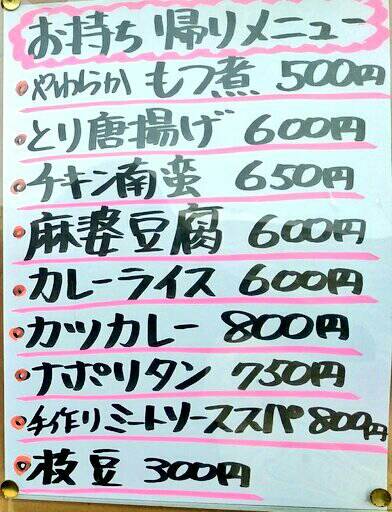 お持ち帰りメニュー
やわらかもつ煮 500円
とり唐揚げ 600円
チキン南蛮 650円
麻婆豆腐 600円
カレーライス 600円
カツカレー 800円
ナポリタン 750円
手作りミートソーススパ 800円
枝豆 300円